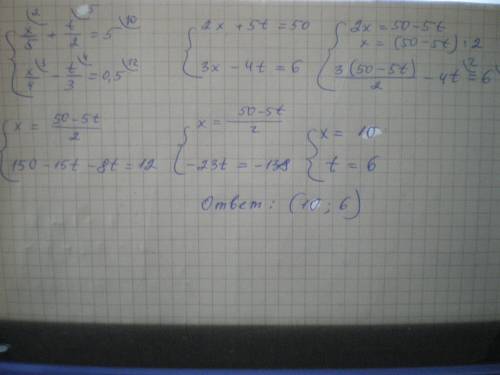 { x/5 \2 + t/2 \5 = 5 \10
x/4 \3 - t/3 \4 = 0,5 \12
{ 2x + 5t = 50
3x - 4t = 6
{ 2x = 50 - 5t
x = (50 - 5t) : 2
3(50 - 5t)/2 - 4t \2 = 6 \2
{ x = 50 - 5t / 2
150 - 15t - 8t = 12
{ x = 50 - 5t / 2
-23t = -138
{ x = 10
t = 6
Ответ: (10; 6)